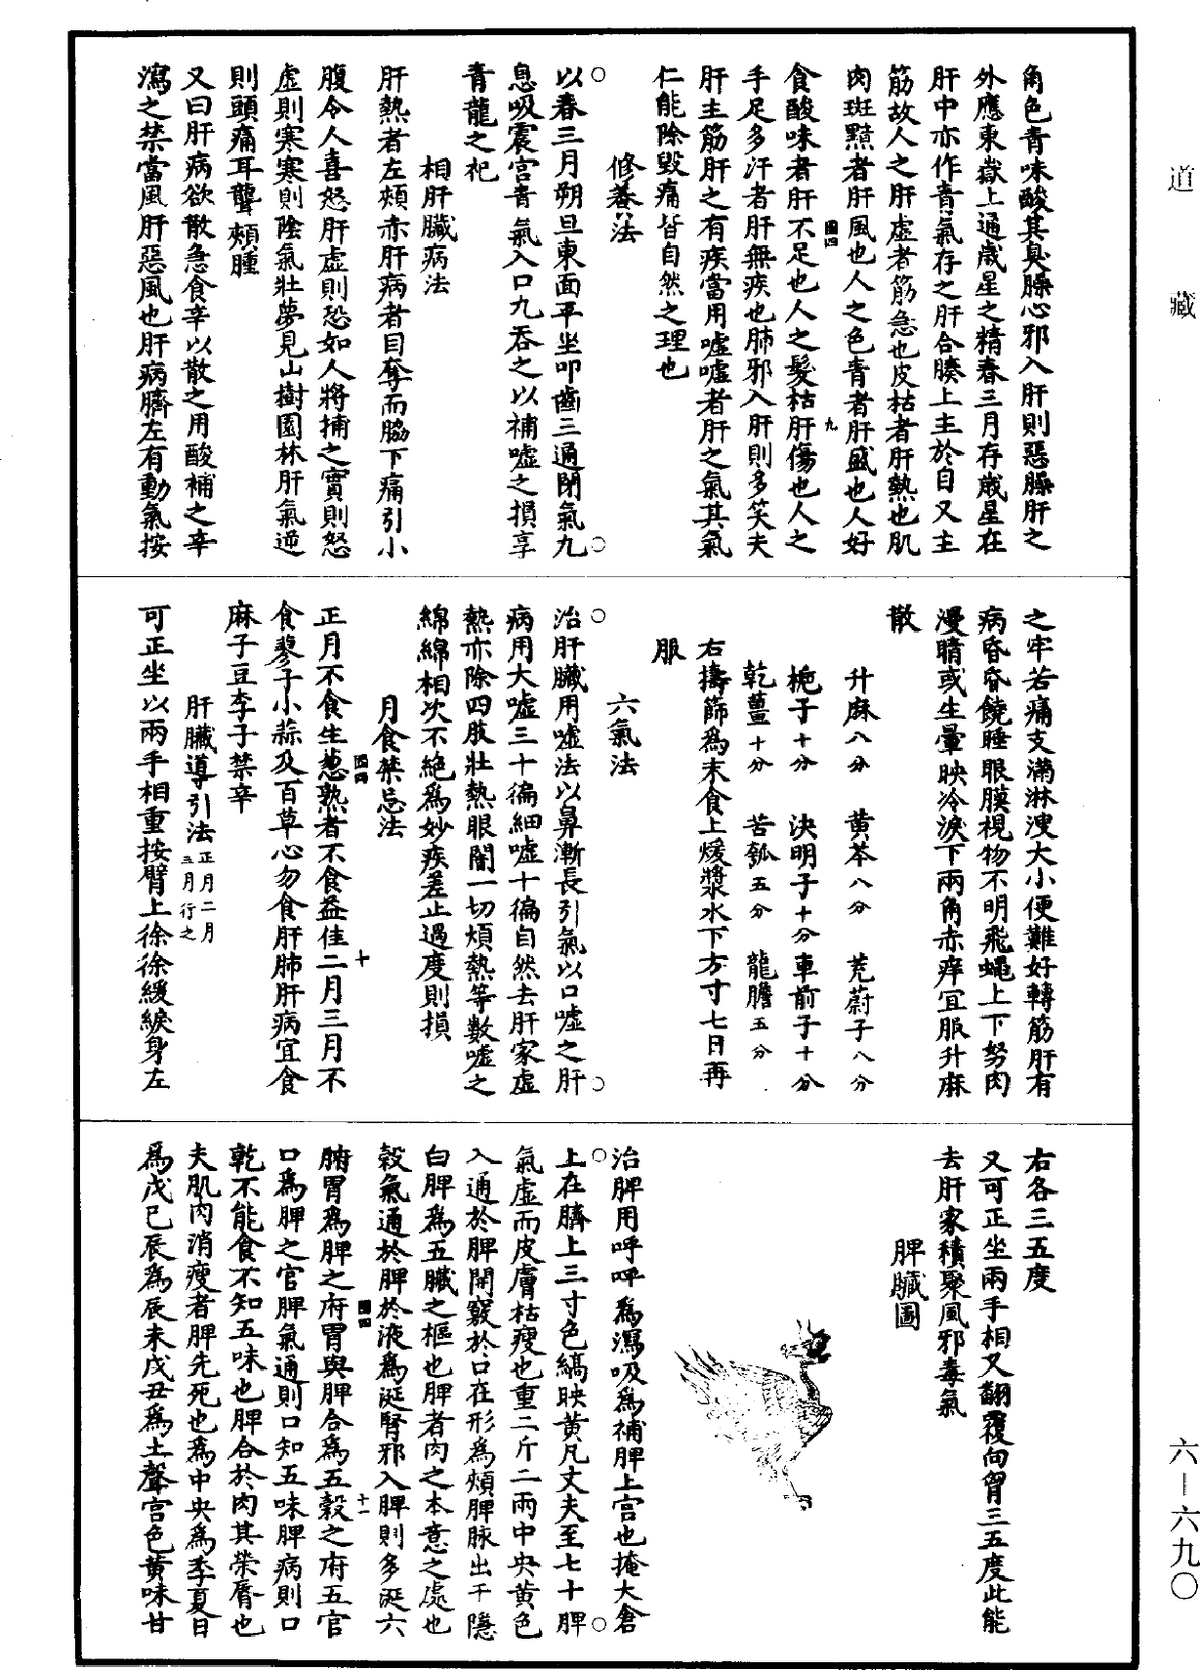 道藏
角色青味酸其臭臊心邪入肝則惡臊肝之
外應東嶽上通歲星之精春三月存歲星在
肝中亦作青氣存之肝合腠上主於目又主
筋故人之肝虛者筋急也皮枯者肝熱也肌
肉斑黯者肝風也人之色青者肝盛也人好
食酸味者肝不足也人之髮枯肝傷也人之
圖四
九
手足多汗者肝無疾也肺邪入肝則多笑夫
肝主筋肝之有疾當用噓噓者肝之氣其氣
仁能除毀痛皆自然之理也
修養法
以春三月朔旦東面平坐叩齒三通閉氣九
息吸震宮青氣入口九吞之以補噓之損享
青龍之祀
相肝臟病法
肝熱者左頰赤肝病者目奪而脇下痛引小
腹令人喜怒肝虛則恐如人將捕之實則怒
虛則寒寒則陰氣壯夢見山樹園林肝氣逆
則頭痛耳聾頰腫
又曰肝病欲散急食辛以散之用酸補之辛
瀉之禁當風肝惡風也肝病臍左有動氣按
之牢若痛支滿淋溲大小便難好轉筋肝有
病昏昏饒睡眼膜視物不明飛蠅上下努肉
漫睛或生暈映冷淚下兩角赤痒宜服升麻
散
升麻八分 黃芩八分 茺蔚子八分
梔子十分 決明子十分 車前子十分
乾薑十分 苦瓠五分 龍膽五分
右擣篩為末食上煖漿水下方寸七日再
服
六氣法
治肝臟用噓法以鼻漸長引氣以口噓之肝
病用大噓三十徧細噓十徧自然去肝家虛
熱亦除四肢壯熱眼闇一切煩熱等數噓之
綿綿相次不絕為妙疾差止過度則損
月食禁忌法
圖四
十
正月不食生葱熟者不食益佳二月三月不
食蓼子小蒜及百草心勿食肝肺肝病宜食
麻子豆李子禁辛
肝臟導引法正月二月三月行之
可正坐以兩手相重按䏶上徐徐緩捩身左
右各三五度
又可正坐兩手相叉翻覆向胷三五度此能
去肝家積聚風邪毒氣
脾臟圖
治脾用呼呼為瀉吸為補脾上宮也掩大倉
上在臍上三寸色縞映黃凡丈夫至七十脾
氣虛而皮膚枯瘦也重二斤二兩中央黃色
入通於脾開竅於口在形為頰脾脉出于隱
白脾為五臟之樞也脾者肉之本意之處也
穀氣通於脾於液為涎腎邪入脾則多涎六
圖四
十一
腑胃為脾之府胃與脾合為五穀之府五官
口為脾之官脾氣通則口知五味脾病則口
乾不能食不知五味也脾合於肉其榮脣也
夫肌肉消瘦者脾先死也為中央為季夏日
為戊己辰為辰未戌丑為土聲宮色黃味甘
六—六九〇